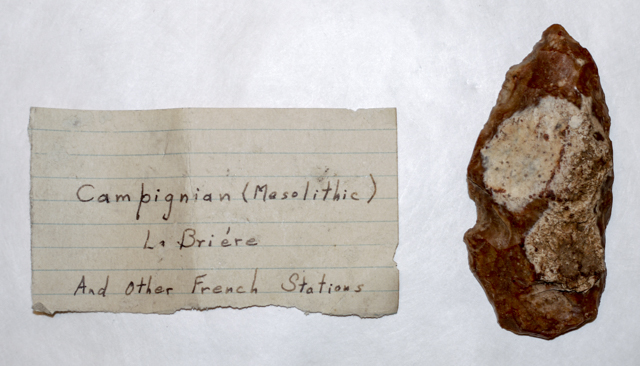 Campignian (Mesolithic)
La Briére
And Other French Stations